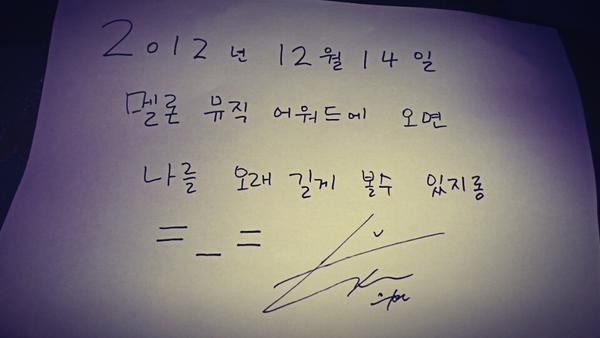 2012년 12월 14일
멜론 뮤직 어워드에 오면
나를 오래 길게 볼수 있지롱
=_=